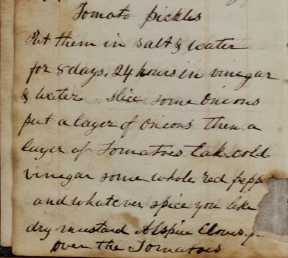 Tomato Pickles
Put them in Salt & water
for 8 days, 24 hours in vinegar
& water, slice some Onions
put a layer of Onions then a
layer of Tomatoes take cold
vinegar some whole red pepp
and whatever spice you like
dry mustard Alspice Cloves
over the Tomatoes